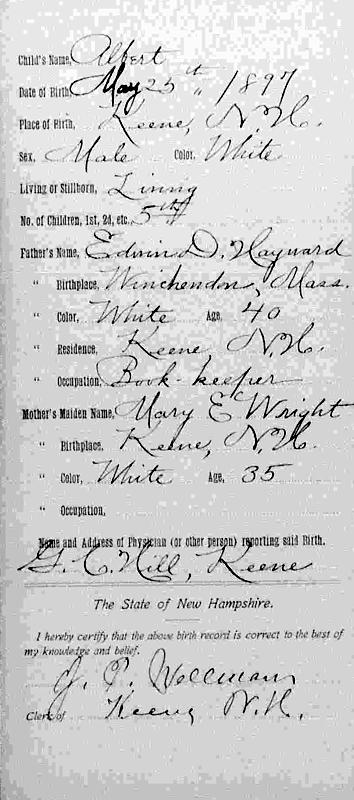 Child's Name, Albert
Date of Birth, May 25th, 1897
Place of Birth, Keene, N.H.
Sex, Male Color, White
Living or Stillborn, Living
No. of Children, 1st, 2d, etc. 5th
Father's Name, Edwin D. Hayward
" Birthplace, Winchendon, Mass.
" Color, White Age, 40
" Residence, Keene, N.H.
" Occupation, Book-keeper
Mother's Maiden Name, Mary E Wright
" Birthplace, Keene, N.H.
" Color, White Age, 35
" Occupation,
Name and Address of Physician (or other person) reporting said Birth.
G. C. Hill, Keene
The State of New Hampshire.
I hereby certify that the above birth record is correct to the best of
my knowledge and belief.
J. P. Wellman
Clerk of Keene N.H.